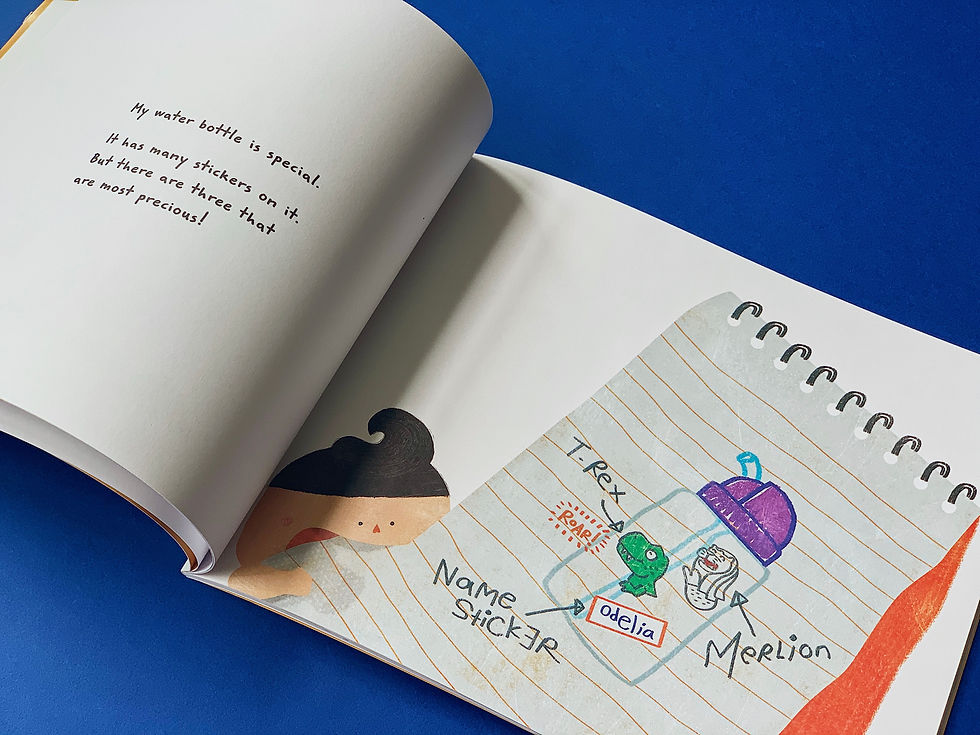 My water bottle is special.
It has many stickers on it.
But there are three that
are most precious!
T-Rex
ROAR!
Name
SticKƎR
odelia
MeRLion